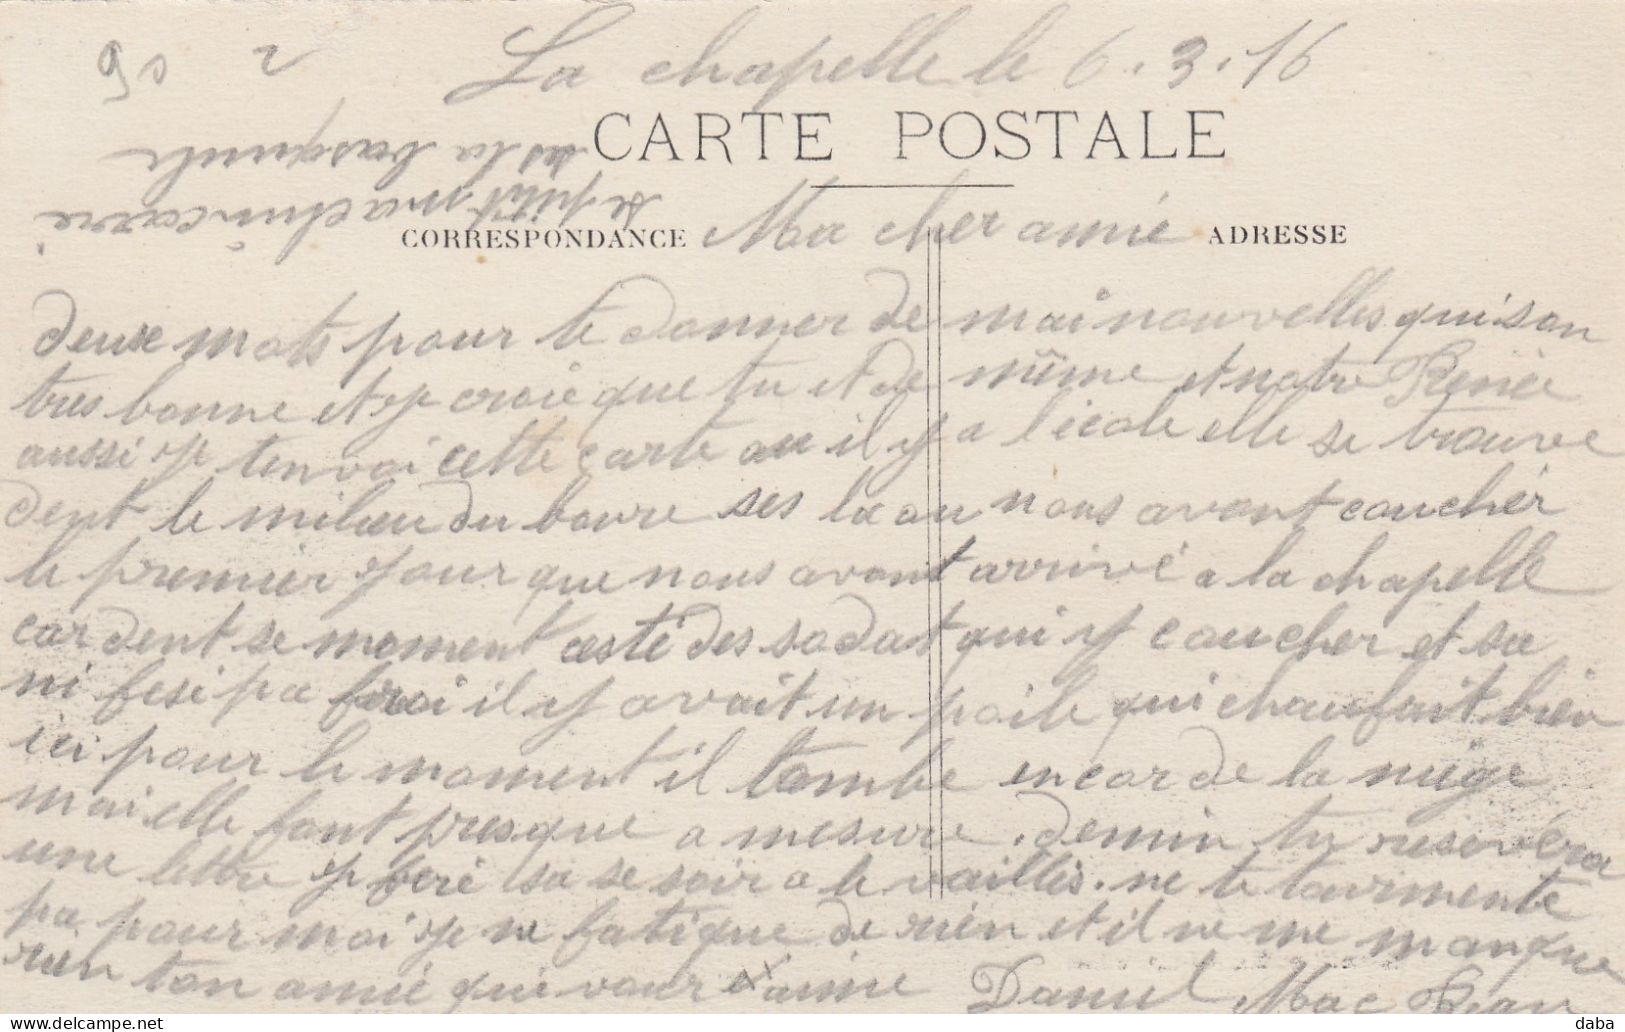 La chapelle le 6.3.16
CARTE POSTALE
CORRESPONDANCE
ADRESSE
Ma cher amie
deuxe mots pour te donner de mai nouvelles qui son
tres bonne et je croie que tu et de mûme et notre Renée
aussi je tenvoi cette carte au il y a lécole elle se trouve
dent le milieu du bourc ses la ou nous avont couchér
le premier jour que nous avont arrivé a la chapelle
car dent se moment cesté des sodat qui y coucher et sa
ni fesi pa froi il y avait un poile qui choufait bien
ici pour le moment il tombe encor de la neige
mai elle font presque a mesure. demin tu resevéra
une lettre je feré sa se soir a le vaillés. ne te tourmente
pa pour moi je ne fatigue de rien et il ne me manque
rien ton amie qui vour aime Daniel Mac
le petit machin carré
es la basquule